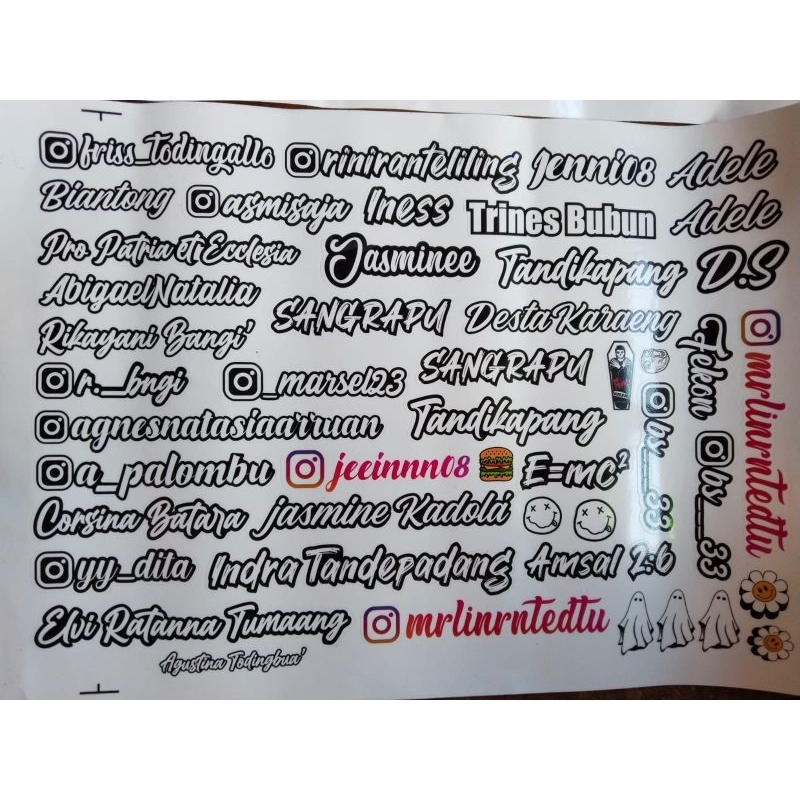 friss_todingallo riniranteliling Jenni08 Adele
Biantong asmisaja Iness Trines Bubun Adele
Pro Patria et Ecclesia Jasminee Tandikapang D.S
AbigaelNatalia SANGRAPU DestaKaraeng
Rikayani Bangi'
r.__bngi _marsel23 SANGRAPU
agnesnatasiaarruan Tandikapang
a_palombu jeeinnn08 E=mc²
Corsina Batara jasmine Kadola
yy_dita Indra Tandepadang Amsal 2:6
Elvi Ratanna Tumaang mrlinrntedtu
Agustina Todingbua'
Tekon
bs__33
bs__33
mrlinrntedtu